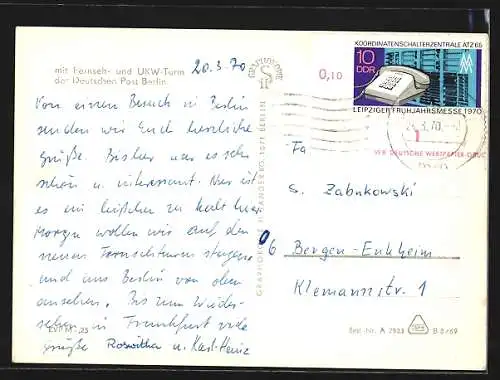 mit Fernseh- und UKW-Turm
der Deutschen Post Berlin
20.3.70
Von einem Besuch in Berlin
senden wir Euch herzliche
Grüße. Bisher war es sehr
schön u. interessant. Nur ist
es ein bißchen zu kalt hier
Morgen wollen wir auf den
neuen Fernsehturm steigen
und uns Berlin von oben
ansehen. Bis zum Wieder-
sehen in Frankfurt viele
Grüße Roswitha u. Karl-Heinz
EVP M -,25
GRAPHOKOPIE
GRAPHOKOPIE H. SANDER KG. 1071 BERLIN
0,10
KOORDINATENSCHALTERZENTRALE ATZ 65
10
DDR
MM
LEIPZIGER FRÜHJAHRSMESSE 1970
3.70
VEB DEUTSCHE WERTPAPIER-DRUCK
Fa
S. Zabnkowski
6 Bergen-Enkheim
Klemannstr. 1
Best.-Nr. A 7933
B 8/69